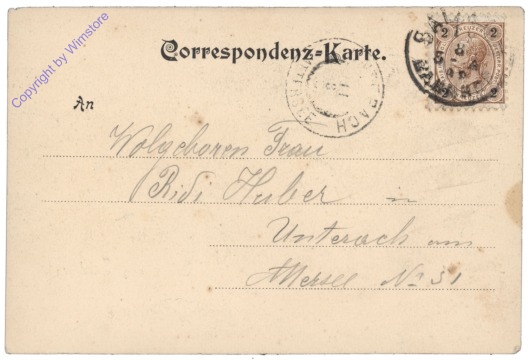 Copyright by Wimstore
Correspondenz-Karte.
2 2
2 2
An
Wolgeboren Frau
Ridi Huber in
Unterach am
Attersee No 31